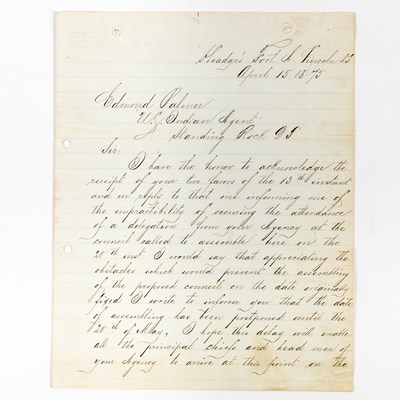 Headqrs Fort A. Lincoln DT
April 15. 1875
Edmond Palmer
U.S. Indian Agent
Standing Rock DT
Sir:
I have the honor to acknowledge the
receipt of your two favors of the 13th instant
and in reply to that one informing me of
the impracticability of securing the attendance
of a delegation from your Agency at the
council called to assemble here on the
20th inst I would say that appreciating the
obstacles which would prevent the assembling
of the proposed council on the date originally
fixed I write to inform you that the date
of assembling has been postponed until the
20th of May, I hope this delay will enable
all the principal chiefs and head men of
your Agency to arrive at this point on the